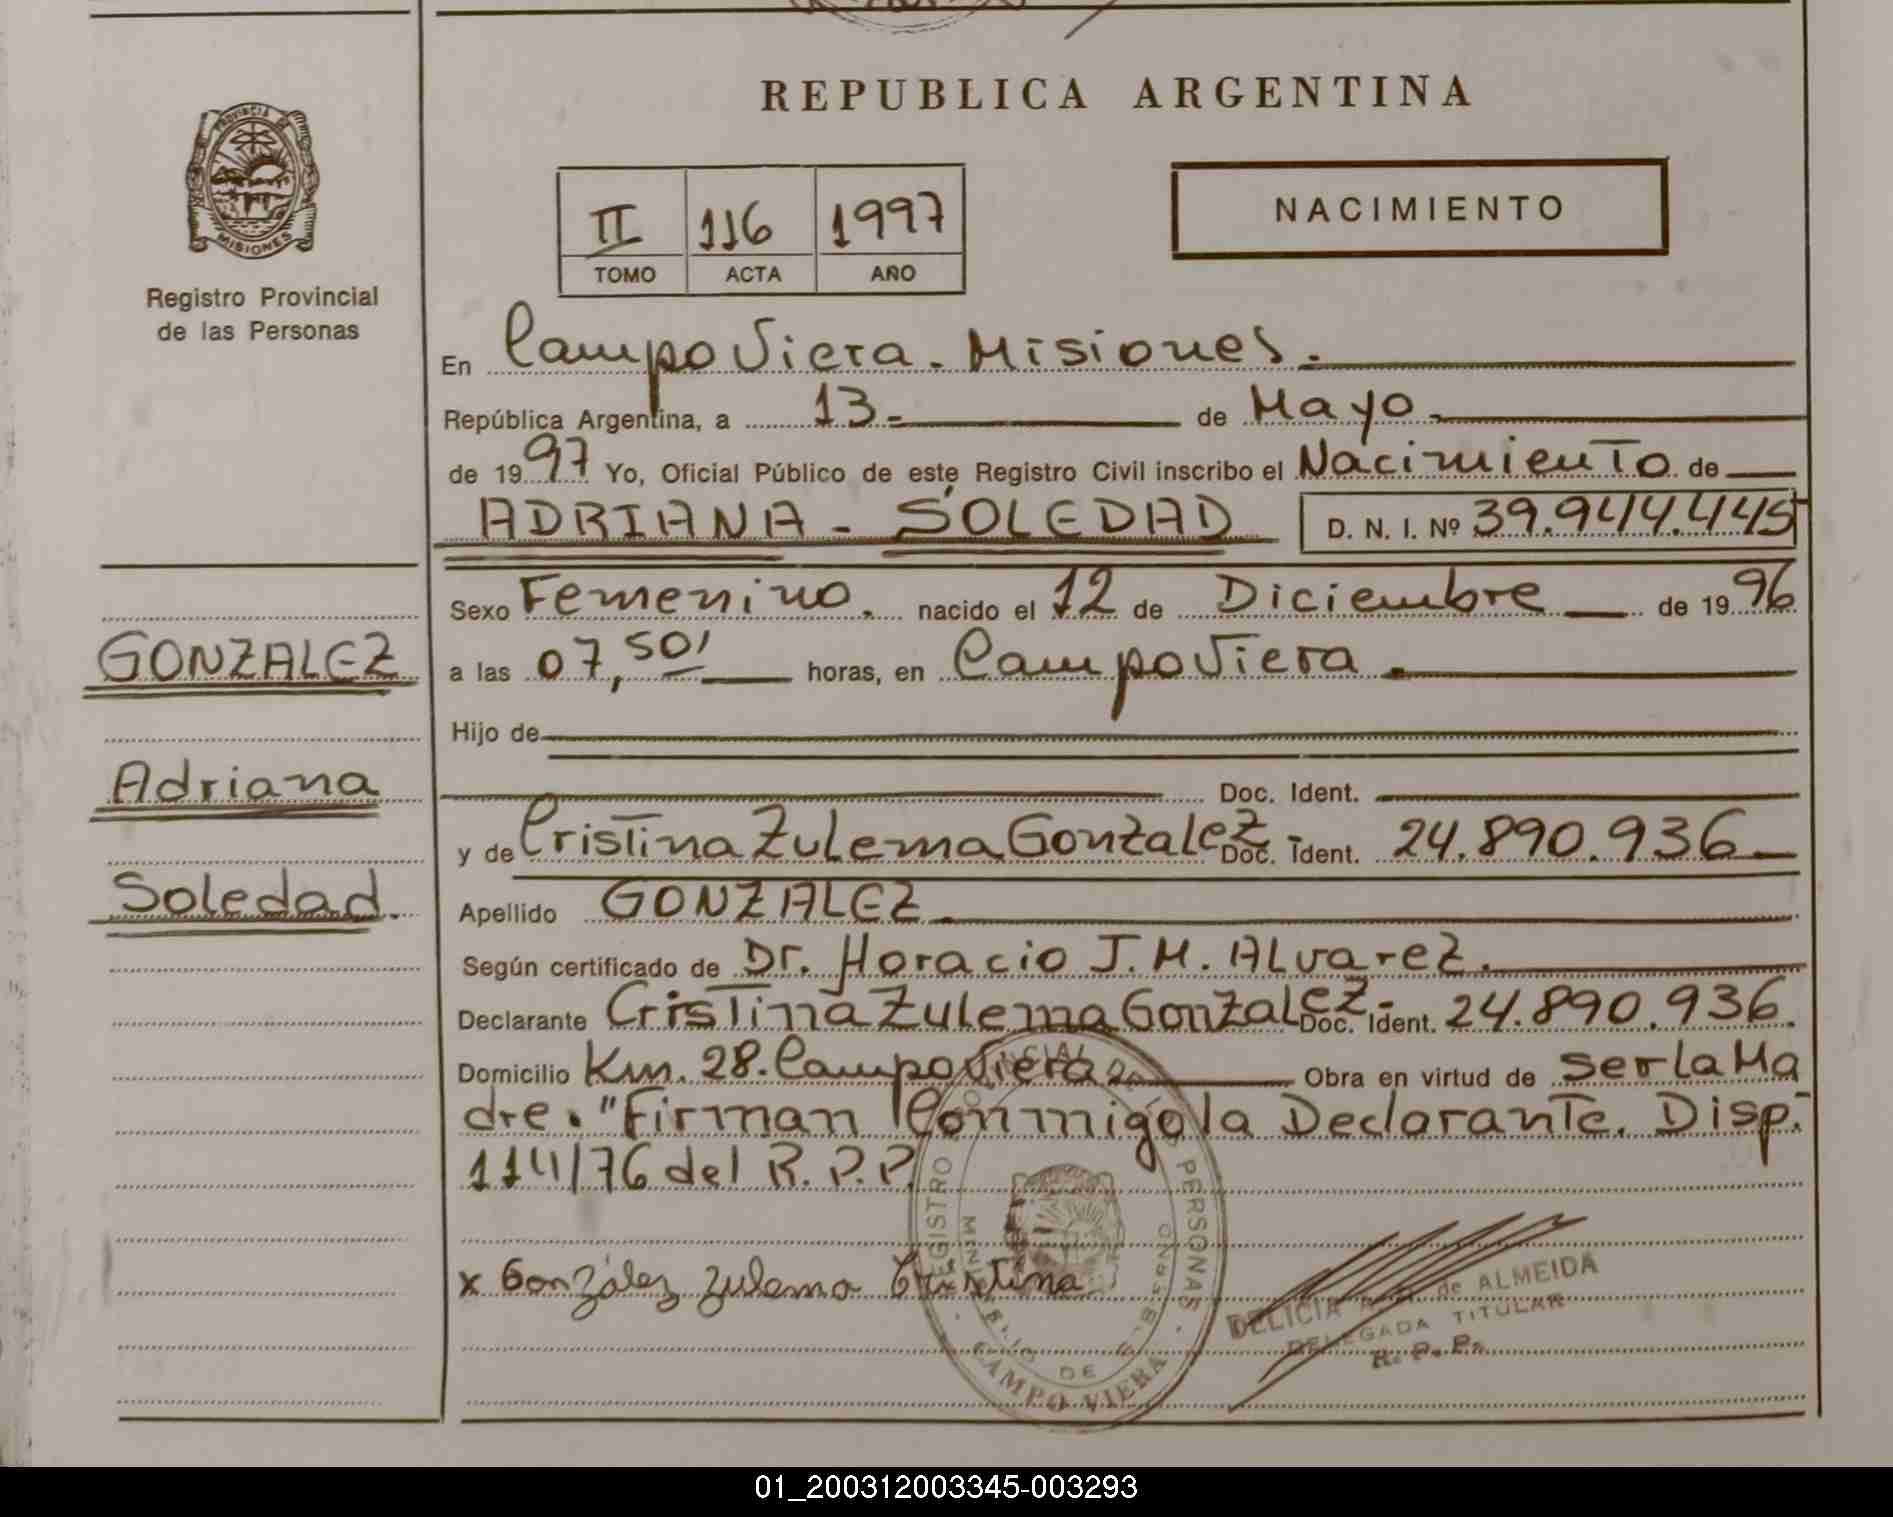 REPUBLICA ARGENTINA
PROVINCIA DE
MISIONES
Registro Provincial
de las Personas
II 116 1997
TOMO ACTA AÑO
NACIMIENTO
En Campo Viera. Misiones.
República Argentina, a 13 de Mayo
de 1997 Yo, Oficial Público de este Registro Civil inscribo el Nacimiento de
ADRIANA - SOLEDAD D. N. I. Nº 39.944.445
Sexo Femenino. nacido el 12 de Diciembre de 1996
GONZALEZ
a las 07,50' horas, en Campo Viera.
Hijo de
Adriana
Doc. Ident.
y de Cristina Zulema Gonzalez - Doc. Ident. 24.890.936
Soledad.
Apellido GONZALEZ
Según certificado de Dr. Horacio J. M. Alvarez.
Declarante Cristina Zulema Gonzalez - Doc. Ident. 24.890.936.
Domicilio Km. 28. Campo Viera Obra en virtud de ser la Ma
dre. "Firman Conmigo la Declarante. Disp.
114/76 del R.P.P.
x González Zulema Cristina
REGISTRO PROVINCIAL DE LAS PERSONAS
CAMPO VIERA
DELICIA de ALMEIDA
DELEGADA TITULAR
R. P. P.
01_200312003345-003293